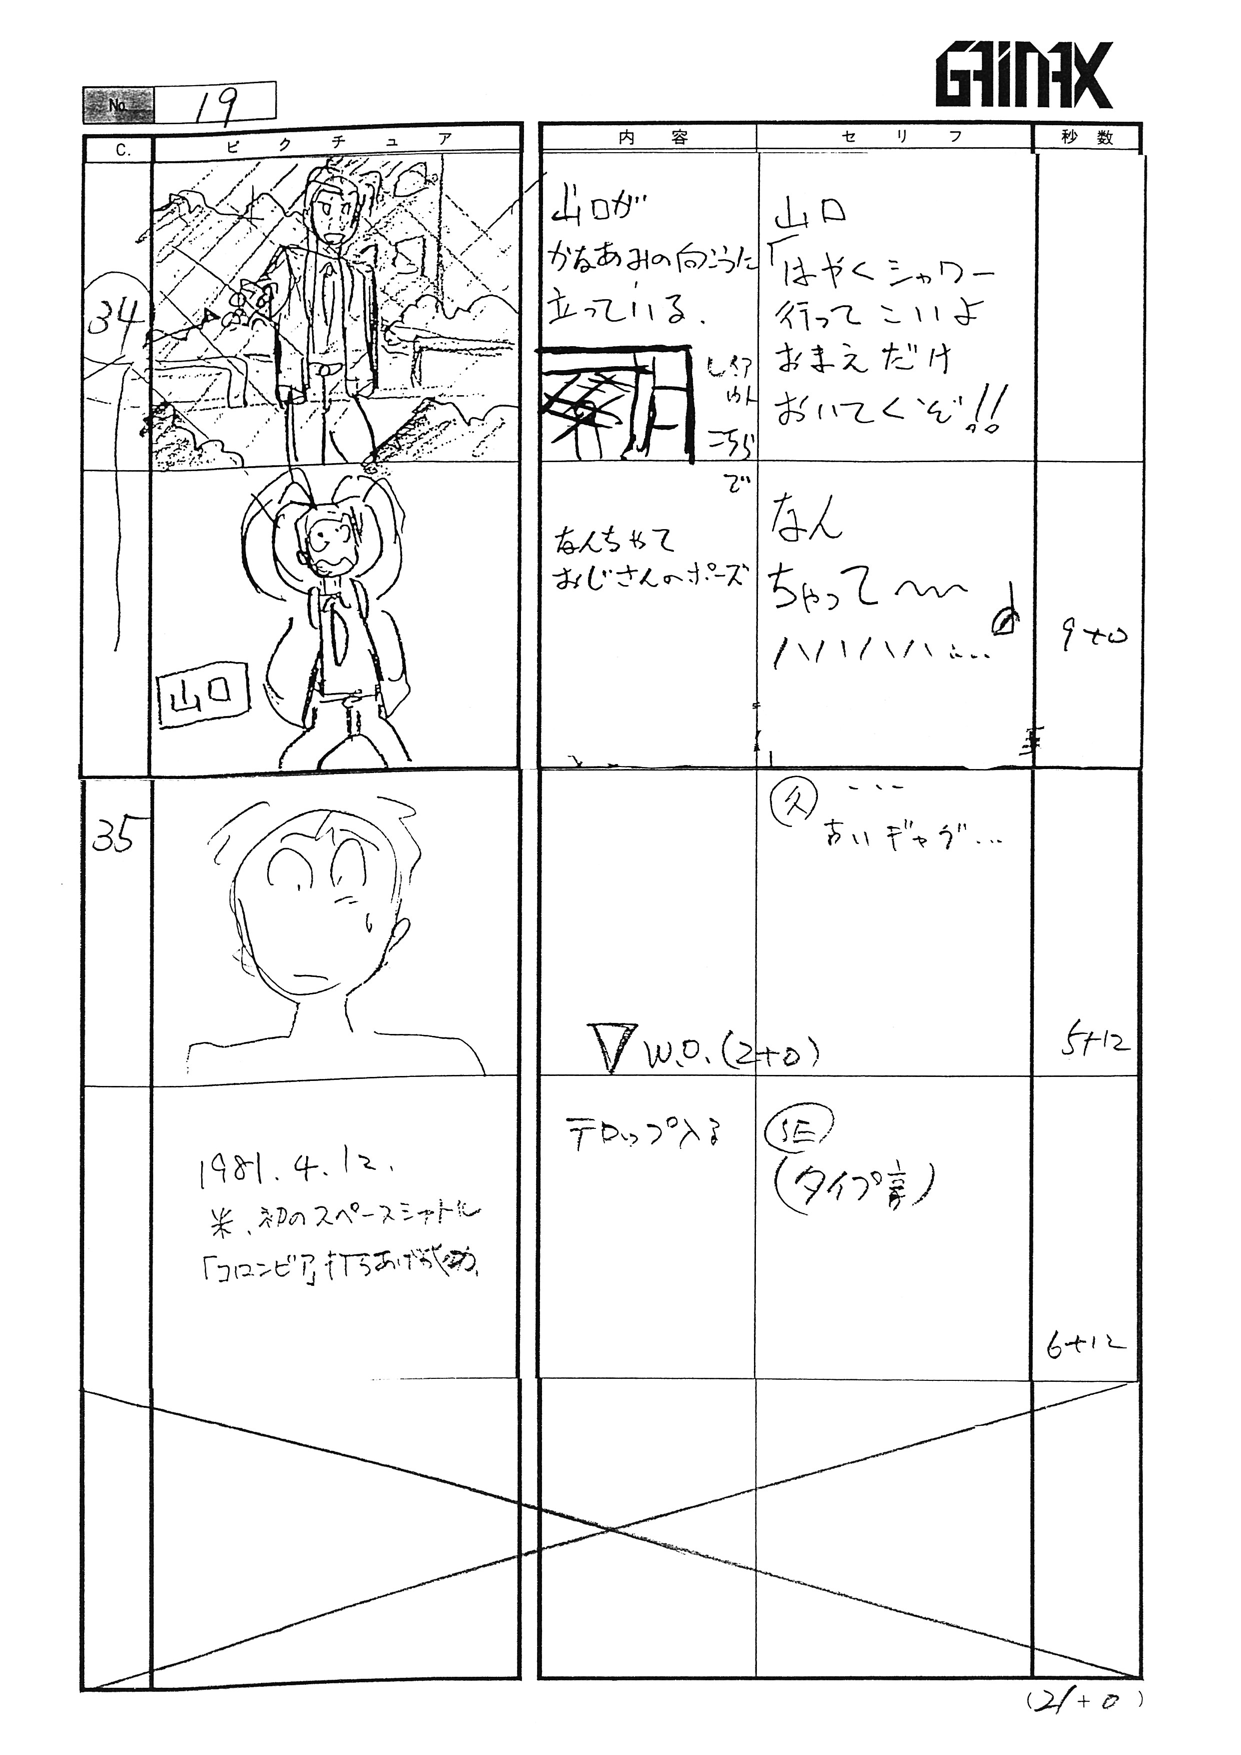 GAINAX
No. 19
C. ピクチュア 内容 セリフ 秒数
34
山口が
かなあみの向こうに
立っている.
レイア
ウト
こちら
で
山口
「はやくシャワー
行ってこいよ
おまえだけ
おいてくぞ!!
山口
なんちゃて
おじさんのポーズ
なん
ちゃって〜〜
ハハハハハ……
9+0
35
久 ・・・
古いギャグ…
W.O.(2+0)
5+12
1981.4.12.
米、初のスペースシャトル
「コロンビア」打ちあげ成功.
テロップ入る
SE
(タイプ音)
6+12
(21+0)